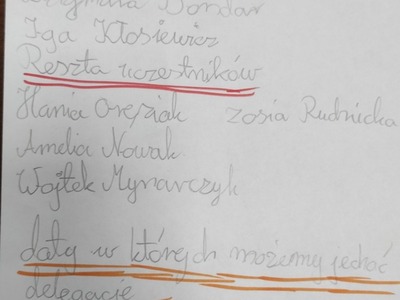 Bondar
Iga Kłosiewicz
Reszta uczestników
Hania Oręziak Zosia Rudnicka
Amelia Nowak
Wojtek Mynarczyk
daty w których możemy jechać
delegacje